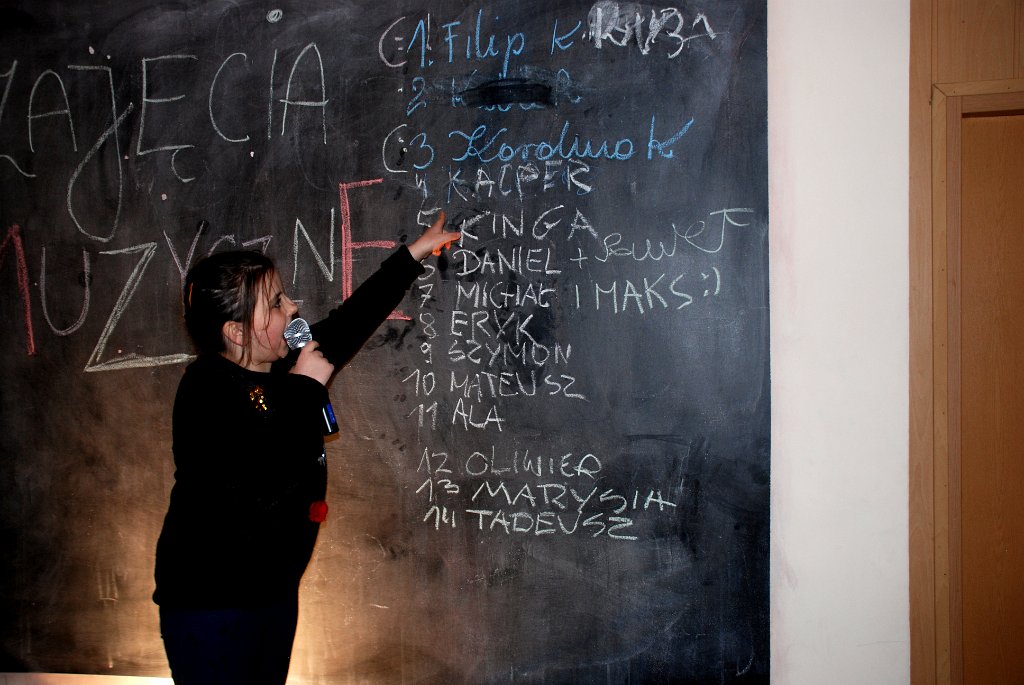 ZAJĘCIA
MUZYCZNE
1. Filip K. KUBA
2
3 Karolina K
4 KACPER
5 KINGA
6 DANIEL +
7 MICHAŁ I MAKS :)
8 ERYK
9 SZYMON
10 MATEUSZ
11 ALA
12 OLIWIER
13 MARYSIA
14 TADEUSZ